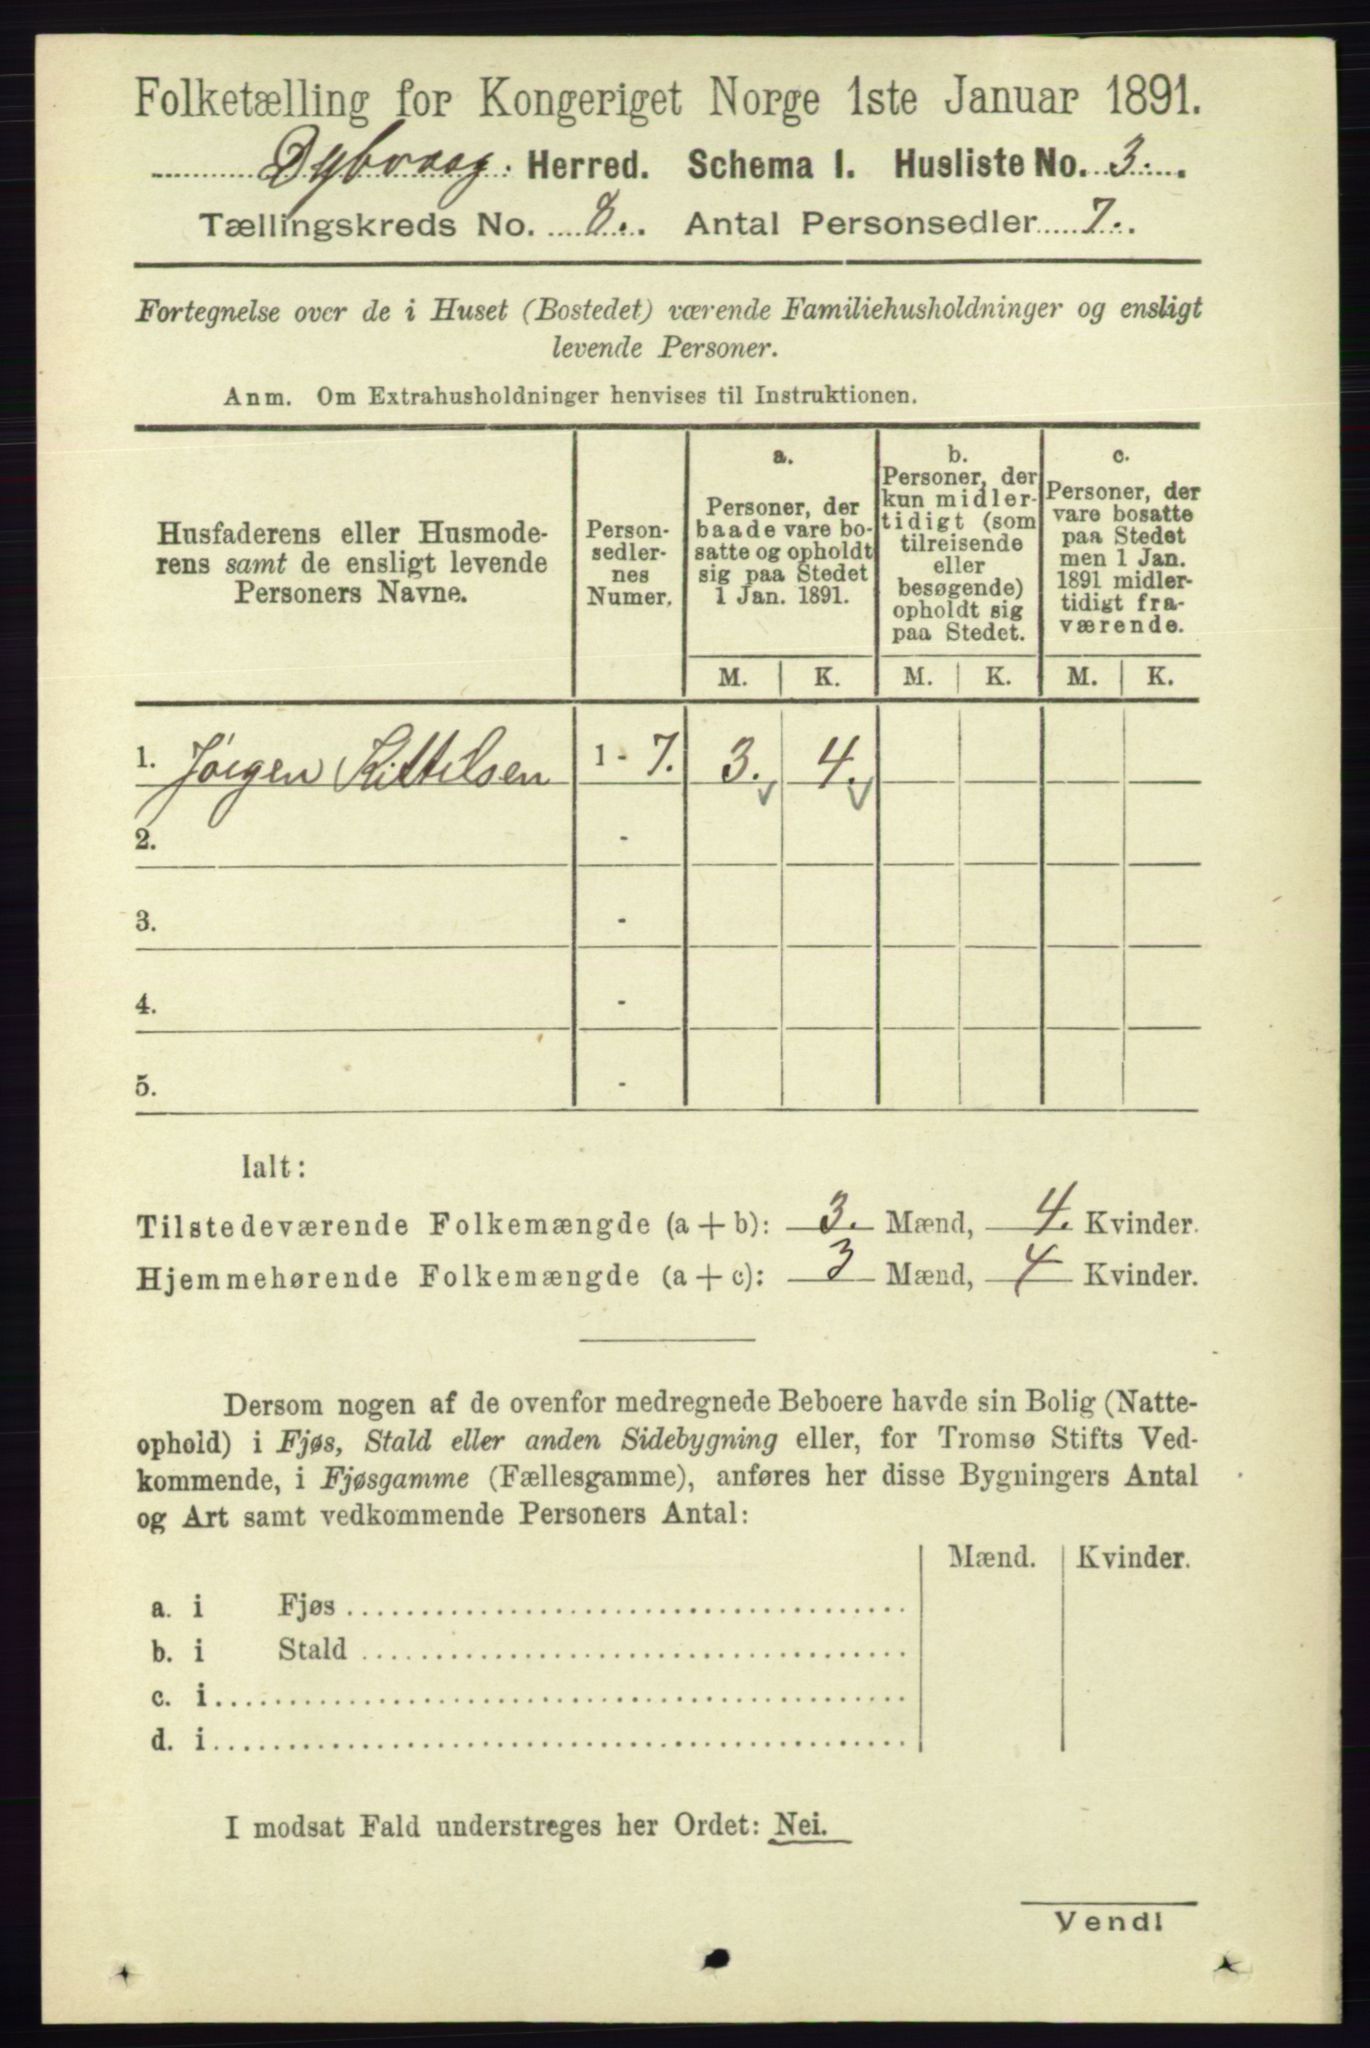 Folketælling for Kongeriget Norge 1ste Januar 1891.
Dybvaag. Herred. Schema I. Husliste No. 3.
Tællingskreds No. 8. Antal Personsedler 7.
Fortegnelse over de i Huset (Bostedet) værende Familiehusholdninger og ensligt
levende Personer.
Anm. Om Extrahusholdninger henvises til Instruktionen.
Husfaderens eller Husmode-
rens samt de ensligt levende
Personers Navne.
Person-
sedler-
nes
Numer.
a.
Personer, der
baade vare bo-
satte og opholdt
sig paa Stedet
1 Jan. 1891.
b.
Personer, der
kun midler-
tidigt (som
tilreisende
eller
besøgende)
opholdt sig
paa Stedet.
c.
Personer, der
vare bosatte
paa Stedet
men 1 Jan.
1891 midler-
tidigt fra-
værende.
M. K. M. K. M. K.
1. Jørgen Kittelsen 1 - 7. 3. 4.
2. -
3. -
4. -
5. -
Ialt:
Tilstedeværende Folkemængde (a + b): 3. Mænd, 4. Kvinder.
Hjemmehørende Folkemængde (a + c): 3 Mænd, 4 Kvinder.
Dersom nogen af de ovenfor medregnede Beboere havde sin Bolig (Natte-
ophold) i Fjøs, Stald eller anden Sidebygning eller, for Tromsø Stifts Ved-
kommende, i Fjøsgamme (Fællesgamme), anføres her disse Bygningers Antal
og Art samt vedkommende Personers Antal:
Mænd. Kvinder.
a. i Fjøs
b. i Stald
c. i
d. i
I modsat Fald understreges her Ordet: Nei.
Vend!